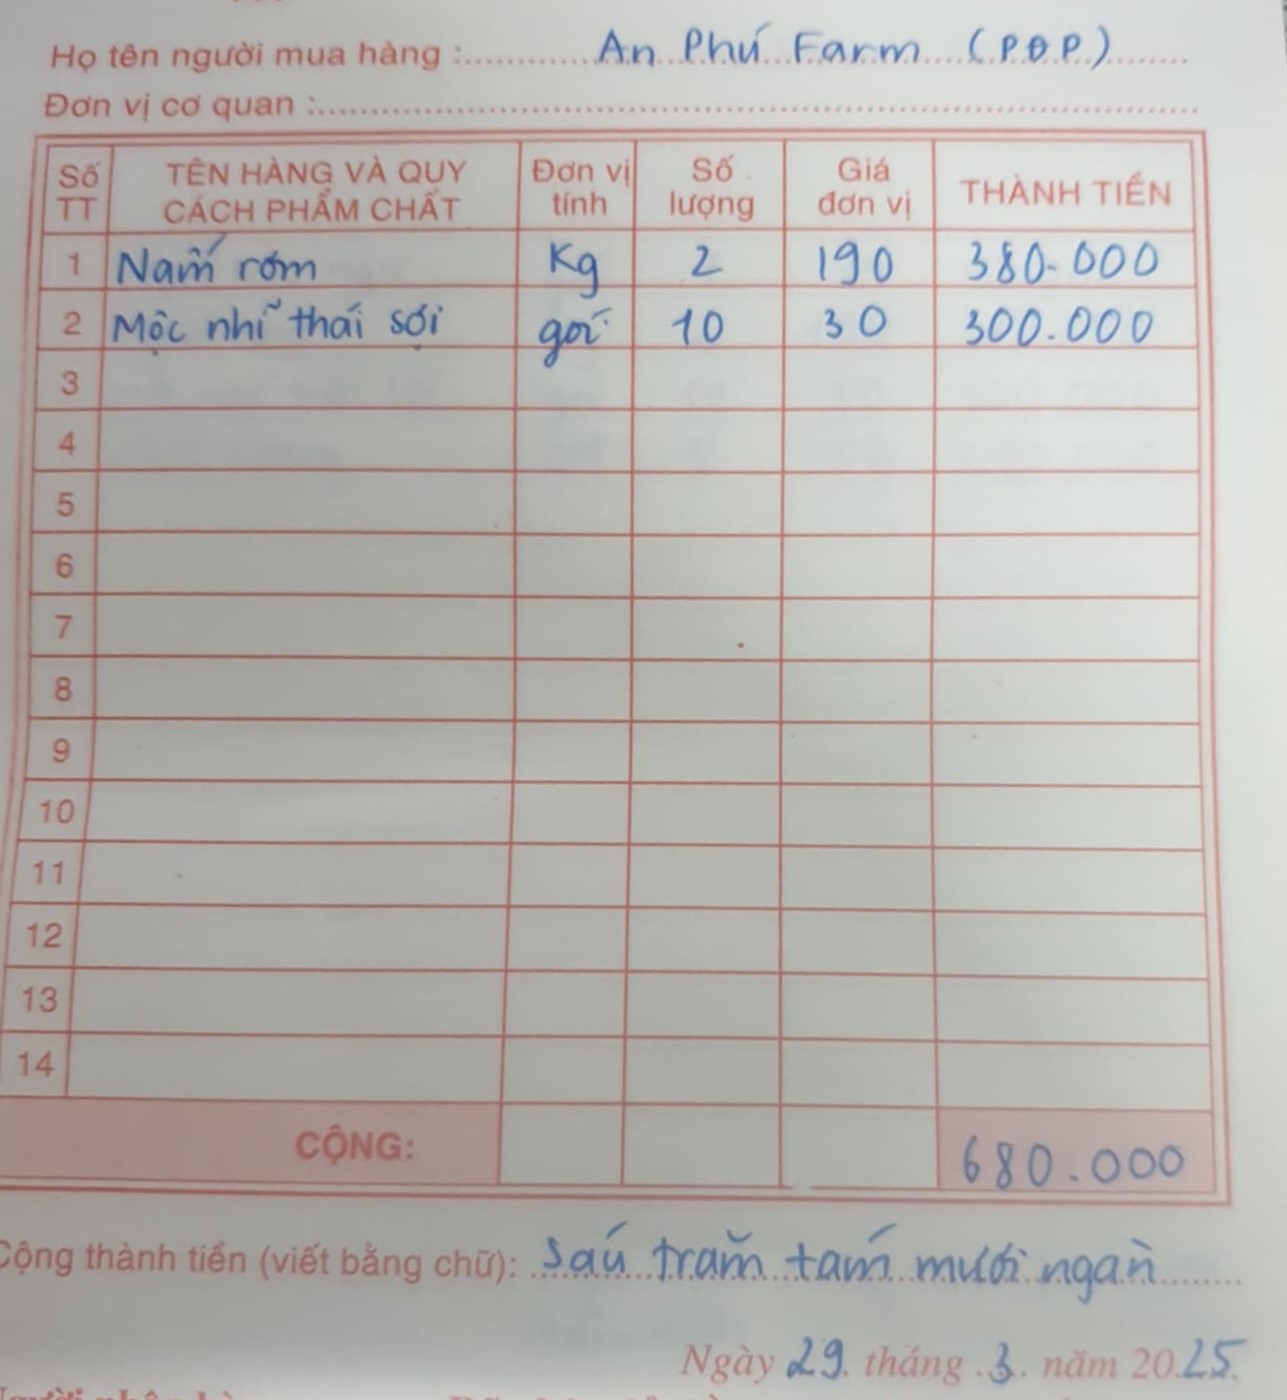 Họ tên người mua hàng : An Phú Farm (P.Đ.P.)
Đơn vị cơ quan :
Số TT TÊN HÀNG VÀ QUY CÁCH PHẨM CHẤT Đơn vị tính Số lượng Giá đơn vị THÀNH TIỀN
1 Nấm rơm Kg 2 190 380.000
2 Mộc nhĩ thái sợi gói 10 30 300.000
3
4
5
6
7
8
9
10
11
12
13
14
CỘNG: 680.000
Cộng thành tiền (viết bằng chữ): Sáu trăm tám mươi ngàn
Ngày 29 tháng 3 năm 2025